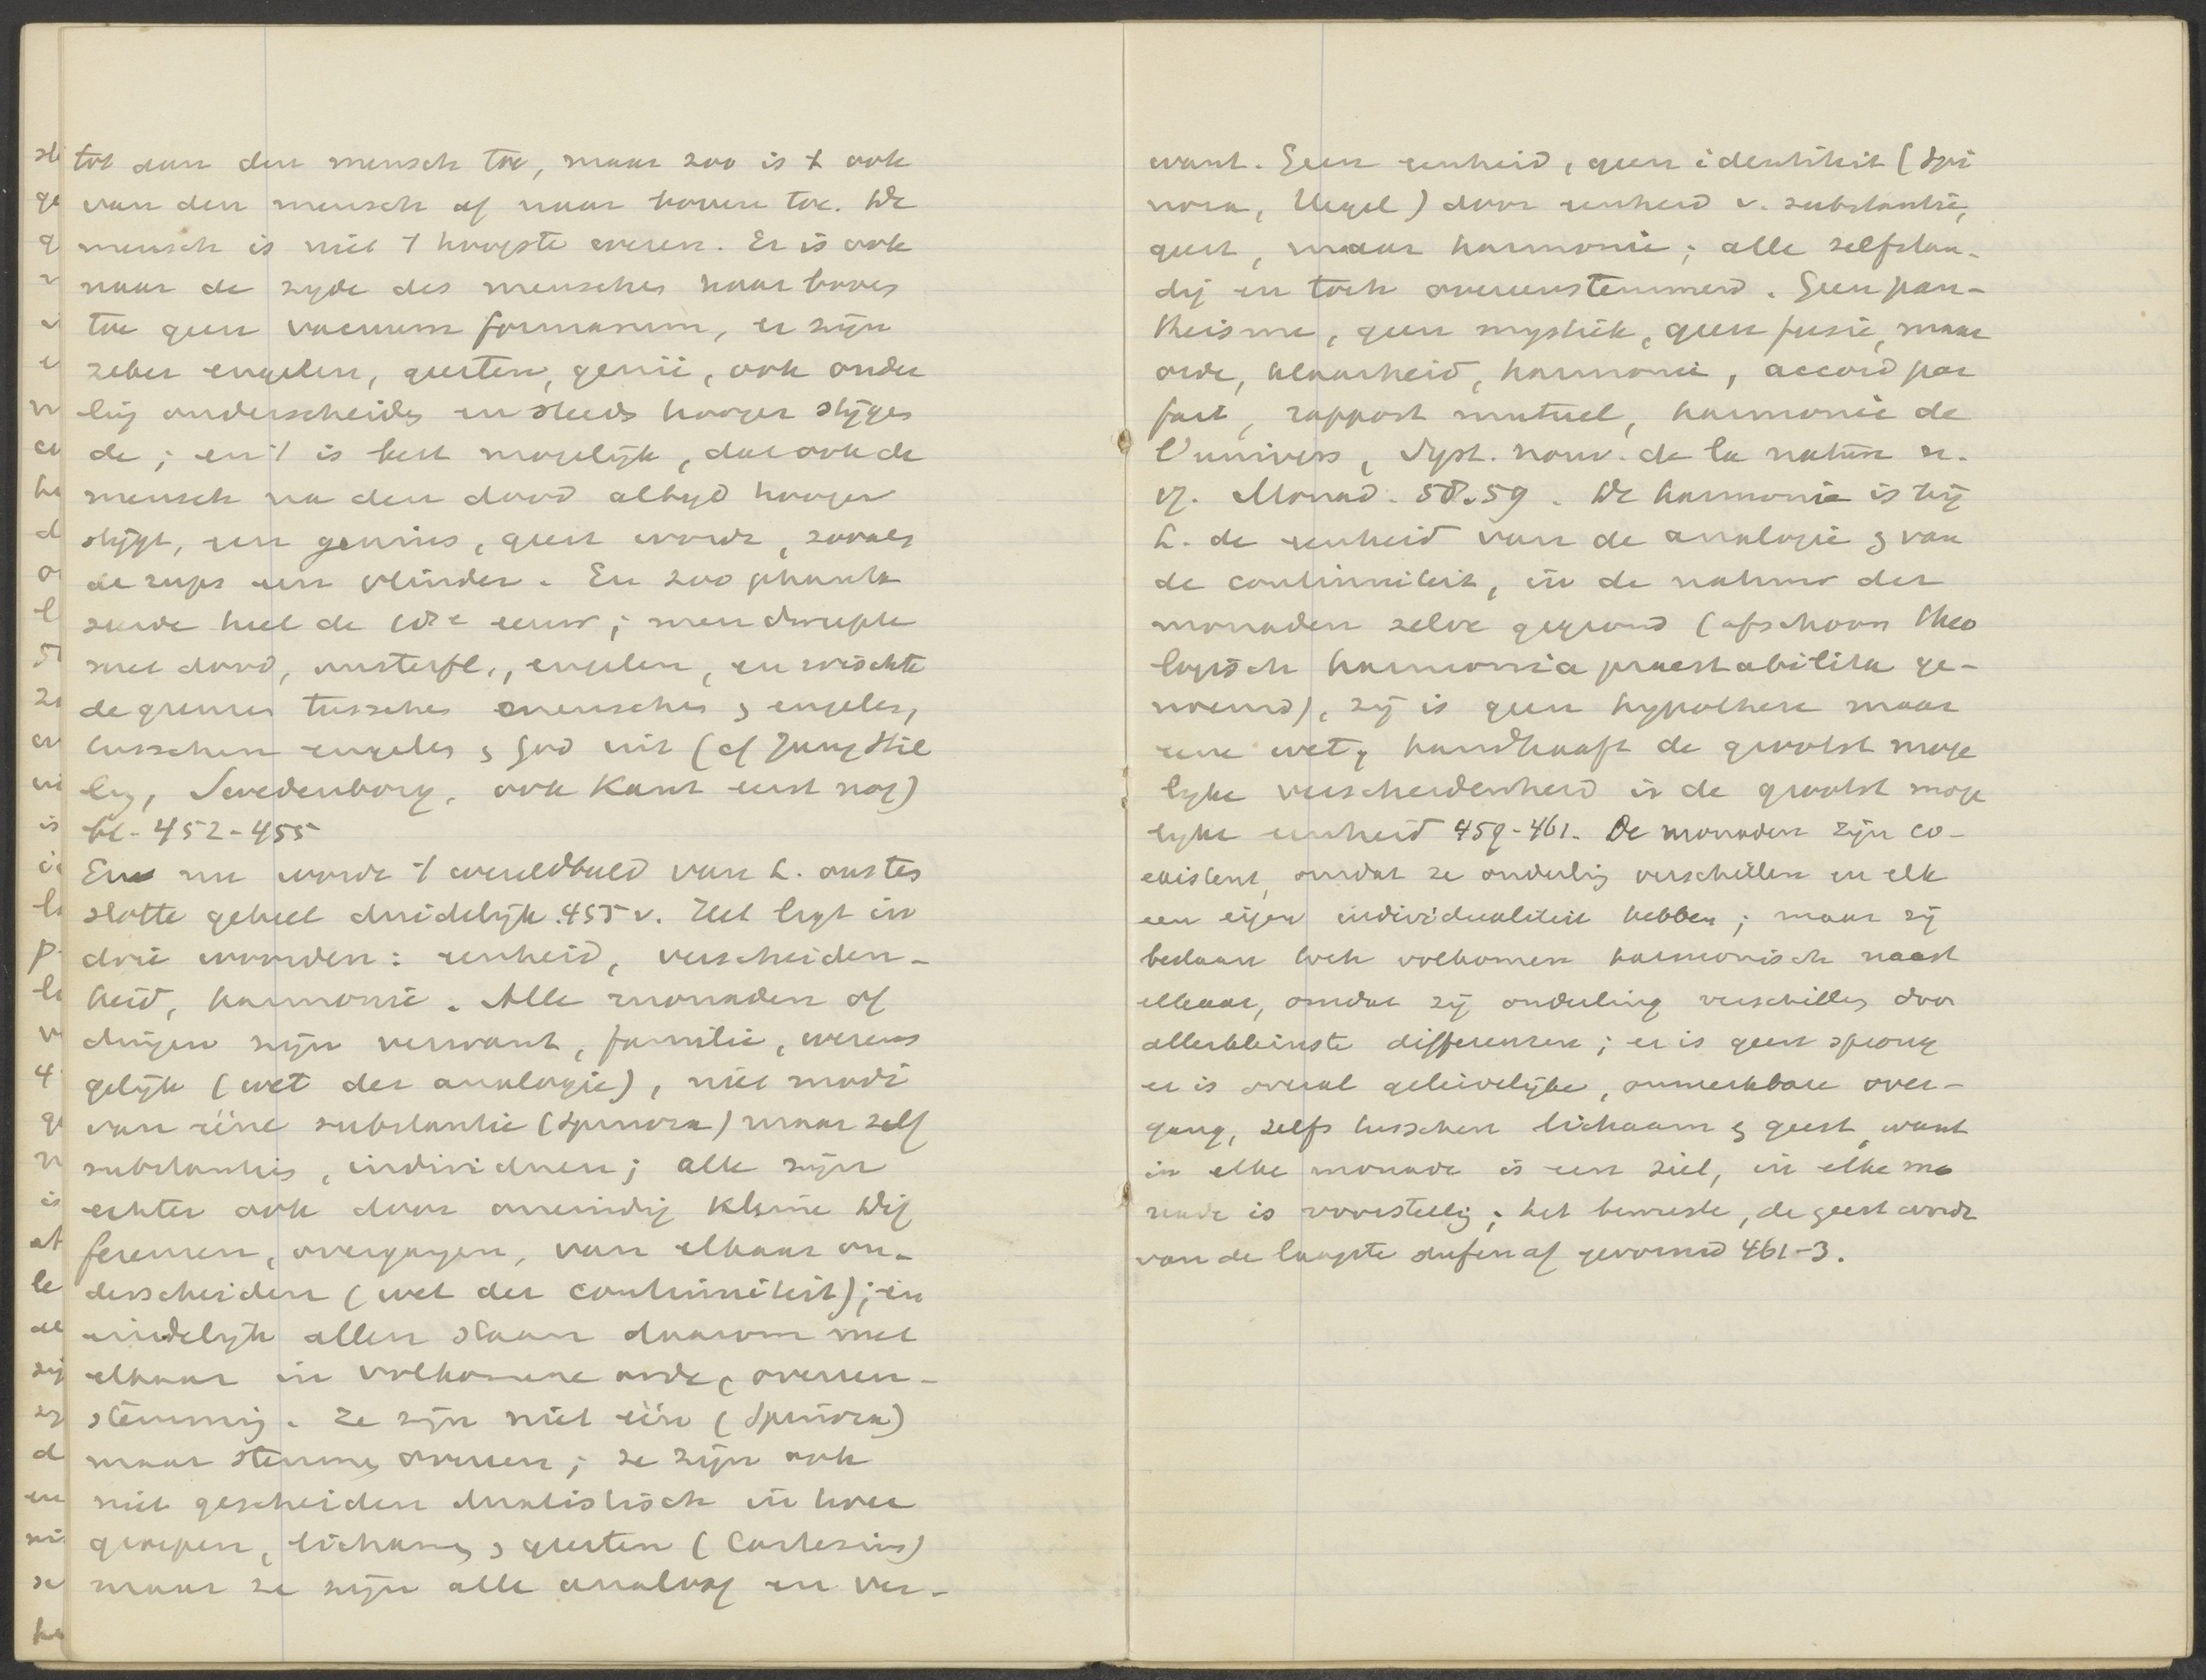 tot aan den mensch toe, maar zoo is 't ook
van den mensch af naar boven toe. De
mensch is niet 't hoogste wezen. Er is ook
naar de zyde des menschen naar boven
toe geen vacuum formarum, er zijn
zeker engelen, geesten, genii, ook onder
ling onderscheiden en steeds hooger stijgen
de; en 't is best mogelijk, dat ook de
mensch na den dood altyd hooger
stijgt, een genius, geest wordt, zooals
de rups een vlinder. En zoo phanta
seerde heel de 18e eeuw; men dweepte
met dood, onsterfl., engelen, en wischte
de grenzen tusschen menschen & engelen,
tusschen engelen & God uit (cf Jung Stil
ling, Swedenborg, ook Kant eerst nog)
bl. 452-455
En nu wordt 't wereldbeeld van L. ons ten
slotte geheel duidelijk. 455 v. Het ligt in
drie woorden: eenheid, verscheiden-
heid, harmonie. Alle monaden of
dingen zijn verwant, familie, wezens
gelijk (wet der analogie), niet modi
van ééne substantie (Spinoza) maar zelf
substanties, individuen; alle zijn
echter ook door oneindig kleine dif
ferenzen, overgangen, van elkaar on-
derscheiden (wet der continuiteit); en
eindelijk allen staan daarom met
elkaar in volkomene orde, overeen-
stemming. Ze zijn niet één (Spinoza)
maar stemmen overeen; ze zijn ook
niet gescheiden dualistisch in twee
groepen, lichamen & geesten (Cartesius)
maar ze zijn alle analoog en ver-
want. Geen eenheid, geen identiteit (Spi
noza, Hegel) door eenheid v. substantie,
geest, maar harmonie; alle zelfstan-
dig en toch overeenstemmend. Geen pan-
theisme, geen mystiek, geen fusie, maar
orde, klaarheid, harmonie, accord par
fait, rapport mutuel, harmonie de
l'univers, Syst. nouv. de la nature n.
17. Monad. 58.59. De harmonie is bij
L. de eenheid van de analogie & van
de continuiteit, in de natuur der
monaden zelve gegrond (ofschoon theo
logisch harmonia praestabilita ge-
noemd), zij is geen hypothese maar
eene wet, handhaaft de grootst moge
lijke verscheidenheid in de grootst moge
lijke eenheid 459-461. De monaden zijn co-
existent, omdat ze onderling verschillen en elk
een eigen individualiteit hebben; maar zij
bestaan toch volkomen harmonisch naast
elkaar, omdat zij onderling verschillen door
allerkleinste differenzen; er is geen sprong
er is overal geleidelijke, onmerkbare over-
gang, zelfs tusschen lichaam & geest, want
in elke monade is een ziel, in elke mo
nade is voorstelling; het bewuste, de geest wordt
van de laagste stufen af gevormd 461-3.